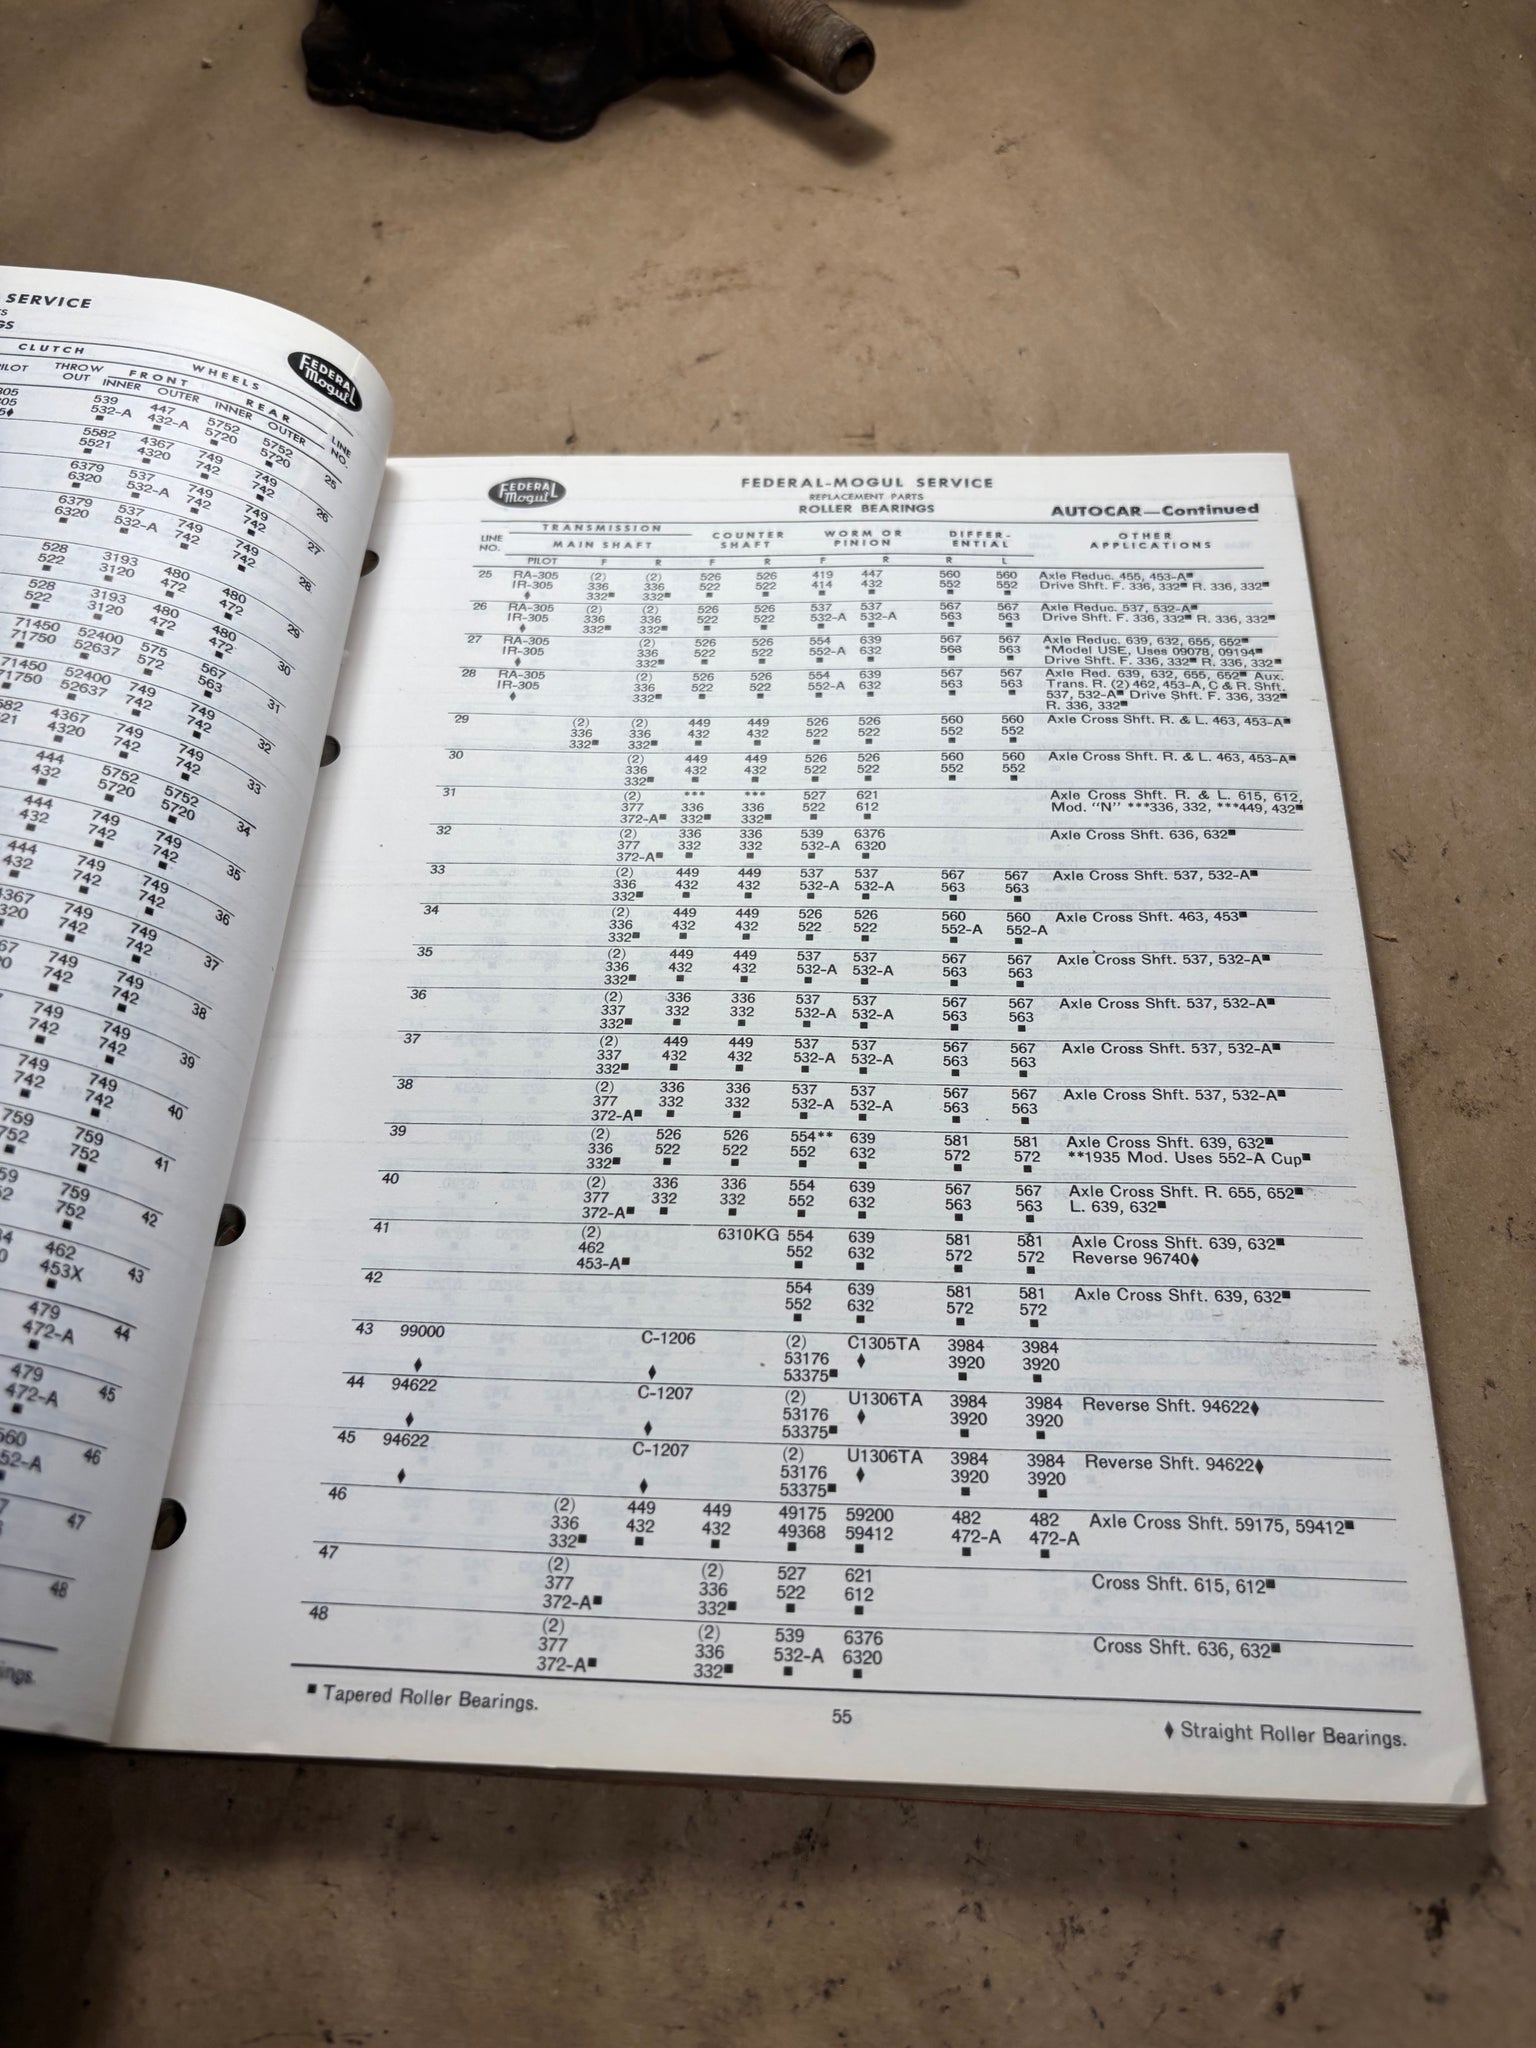 SERVICE
CLUTCH WHEELS
THROW OUT FRONT REAR
INNER OUTER INNER OUTER LINE NO.
FEDERAL Mogul
539 447 5752 5752
532-A 432-A 5720 5720
■ ■ ■ ■ 25
5582 4367 749 749
5521 4320 742 742
■ ■ ■ ■ 26
6379 537 749 749
6320 532-A 742 742
■ ■ ■ ■ 27
6379 537 749 749
6320 532-A 742 742
■ ■ ■ ■ 28
528 3193 480 480
522 3120 472 472
■ ■ ■ ■ 29
528 3193 480 480
522 3120 472 472
■ ■ ■ ■ 30
71450 52400 575 567
71750 52637 572 563
■ ■ ■ ■ 31
71450 52400 749 749
71750 52637 742 742
■ ■ ■ ■ 32
4367 749 749
4320 742 742
■ ■ ■ 33
444 5752 5752
432 5720 5720
■ ■ ■ 34
444 749 749
432 742 742
■ ■ ■ 35
444 749 749
432 742 742
■ ■ ■ 36
4367 749 749
742 742
■ ■ 37
749 749
742 742
■ ■ 38
749 749
742 742
■ ■ 39
749 749
742 742
■ ■ 40
759 759
752 752
■ ■ 41
759
752
■ 42
462
453X
■ 43
479
472-A
■ 44
479
472-A
■ 45
46
47
48
FEDERAL Mogul
FEDERAL-MOGUL SERVICE
REPLACEMENT PARTS
ROLLER BEARINGS
AUTOCAR—Continued
LINE NO. TRANSMISSION MAIN SHAFT COUNTER SHAFT WORM OR PINION DIFFER-ENTIAL OTHER APPLICATIONS
PILOT F R F R F R R L
25 RA-305 (2) (2) 526 526 419 447 560 560 Axle Reduc. 455, 453-A■
IR-305 336 336 522 522 414 432 552 552 Drive Shft. F. 336, 332■ R. 336, 332■
♦ 332■ 332■ ■ ■ ■ ■ ■ ■
26 RA-305 (2) (2) 526 526 537 537 567 567 Axle Reduc. 537, 532-A■
IR-305 336 336 522 522 532-A 532-A 563 563 Drive Shft. F. 336, 332■ R. 336, 332■
♦ 332■ 332■ ■ ■ ■ ■ ■ ■
27 RA-305 (2) 526 526 554 639 567 567 Axle Reduc. 639, 632, 655, 652■
IR-305 336 522 522 552-A 632 563 563 *Model USE, Uses 09078, 09194■
♦ 332■ ■ ■ ■ ■ ■ ■ Drive Shft. F. 336, 332■ R. 336, 332■
28 RA-305 (2) 526 526 554 639 567 567 Axle Red. 639, 632, 655, 652■ Aux.
IR-305 336 522 522 552-A 632 563 563 Trans. R. (2) 462, 453-A, C & R. Shft.
♦ 332■ ■ ■ ■ ■ ■ ■ 537, 532-A■ Drive Shft. F. 336, 332■
R. 336, 332■
29 (2) (2) 449 449 526 526 560 560 Axle Cross Shft. R. & L. 463, 453-A■
336 336 432 432 522 522 552 552
332■ 332■ ■ ■ ■ ■ ■ ■
30 (2) 449 449 526 526 560 560 Axle Cross Shft. R. & L. 463, 453-A■
336 432 432 522 522 552 552
332■ ■ ■ ■ ■ ■ ■
31 (2) *** *** 527 621 Axle Cross Shft. R. & L. 615, 612,
377 336 336 522 612 Mod. "N" ***336, 332, ***449, 432■
372-A■ 332■ 332■ ■ ■
32 (2) 336 336 539 6376 Axle Cross Shft. 636, 632■
377 332 332 532-A 6320
372-A■ ■ ■ ■ ■
33 (2) 449 449 537 537 567 567 Axle Cross Shft. 537, 532-A■
336 432 432 532-A 532-A 563 563
332■ ■ ■ ■ ■ ■ ■
34 (2) 449 449 526 526 560 560 Axle Cross Shft. 463, 453■
336 432 432 522 522 552-A 552-A
332■ ■ ■ ■ ■ ■ ■
35 (2) 449 449 537 537 567 567 Axle Cross Shft. 537, 532-A■
336 432 432 532-A 532-A 563 563
332■ ■ ■ ■ ■ ■ ■
36 (2) 336 336 537 537 567 567 Axle Cross Shft. 537, 532-A■
337 332 332 532-A 532-A 563 563
332■ ■ ■ ■ ■ ■ ■
37 (2) 449 449 537 537 567 567 Axle Cross Shft. 537, 532-A■
337 432 432 532-A 532-A 563 563
332■ ■ ■ ■ ■ ■ ■
38 (2) 336 336 537 537 567 567 Axle Cross Shft. 537, 532-A■
377 332 332 532-A 532-A 563 563
372-A■ ■ ■ ■ ■ ■ ■
39 (2) 526 526 554** 639 581 581 Axle Cross Shft. 639, 632■
336 522 522 552 632 572 572 **1935 Mod. Uses 552-A Cup■
332■ ■ ■ ■ ■ ■ ■
40 (2) 336 336 554 639 567 567 Axle Cross Shft. R. 655, 652■
377 332 332 552 632 563 563 L. 639, 632■
372-A■ ■ ■ ■ ■ ■ ■
41 (2) 6310KG 554 639 581 581 Axle Cross Shft. 639, 632■
462 552 632 572 572 Reverse 96740♦
453-A■ ■ ■ ■ ■
42 554 639 581 581 Axle Cross Shft. 639, 632■
552 632 572 572
■ ■ ■ ■
43 99000 C-1206 (2) C1305TA 3984 3984
♦ ♦ 53176 ♦ 3920 3920
53375■ ■ ■
44 94622 C-1207 (2) U1306TA 3984 3984 Reverse Shft. 94622♦
♦ ♦ 53176 ♦ 3920 3920
53375■ ■ ■
45 94622 C-1207 (2) U1306TA 3984 3984 Reverse Shft. 94622♦
♦ ♦ 53176 ♦ 3920 3920
53375■ ■ ■
46 (2) 449 449 49175 59200 482 482 Axle Cross Shft. 59175, 59412■
336 432 432 49368 59412 472-A 472-A
332■ ■ ■ ■ ■ ■ ■
47 (2) (2) 527 621 Cross Shft. 615, 612■
377 336 522 612
372-A■ 332■ ■ ■
48 (2) (2) 539 6376 Cross Shft. 636, 632■
377 336 532-A 6320
372-A■ 332■ ■ ■
■ Tapered Roller Bearings.
55
♦ Straight Roller Bearings.